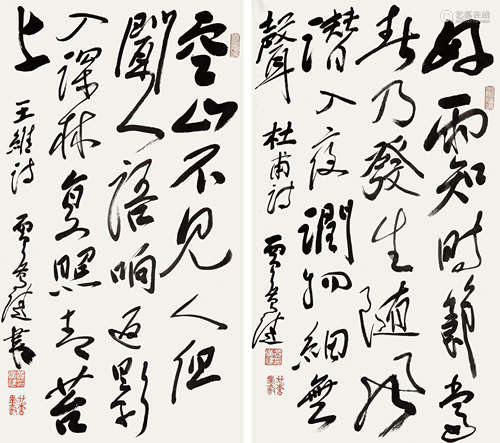 好雨知時節當
春乃發生隨風
潛入夜潤物細無
聲
杜甫詩
空山不見人但
聞人語响返影
入深林復照青苔
上
王維詩 書